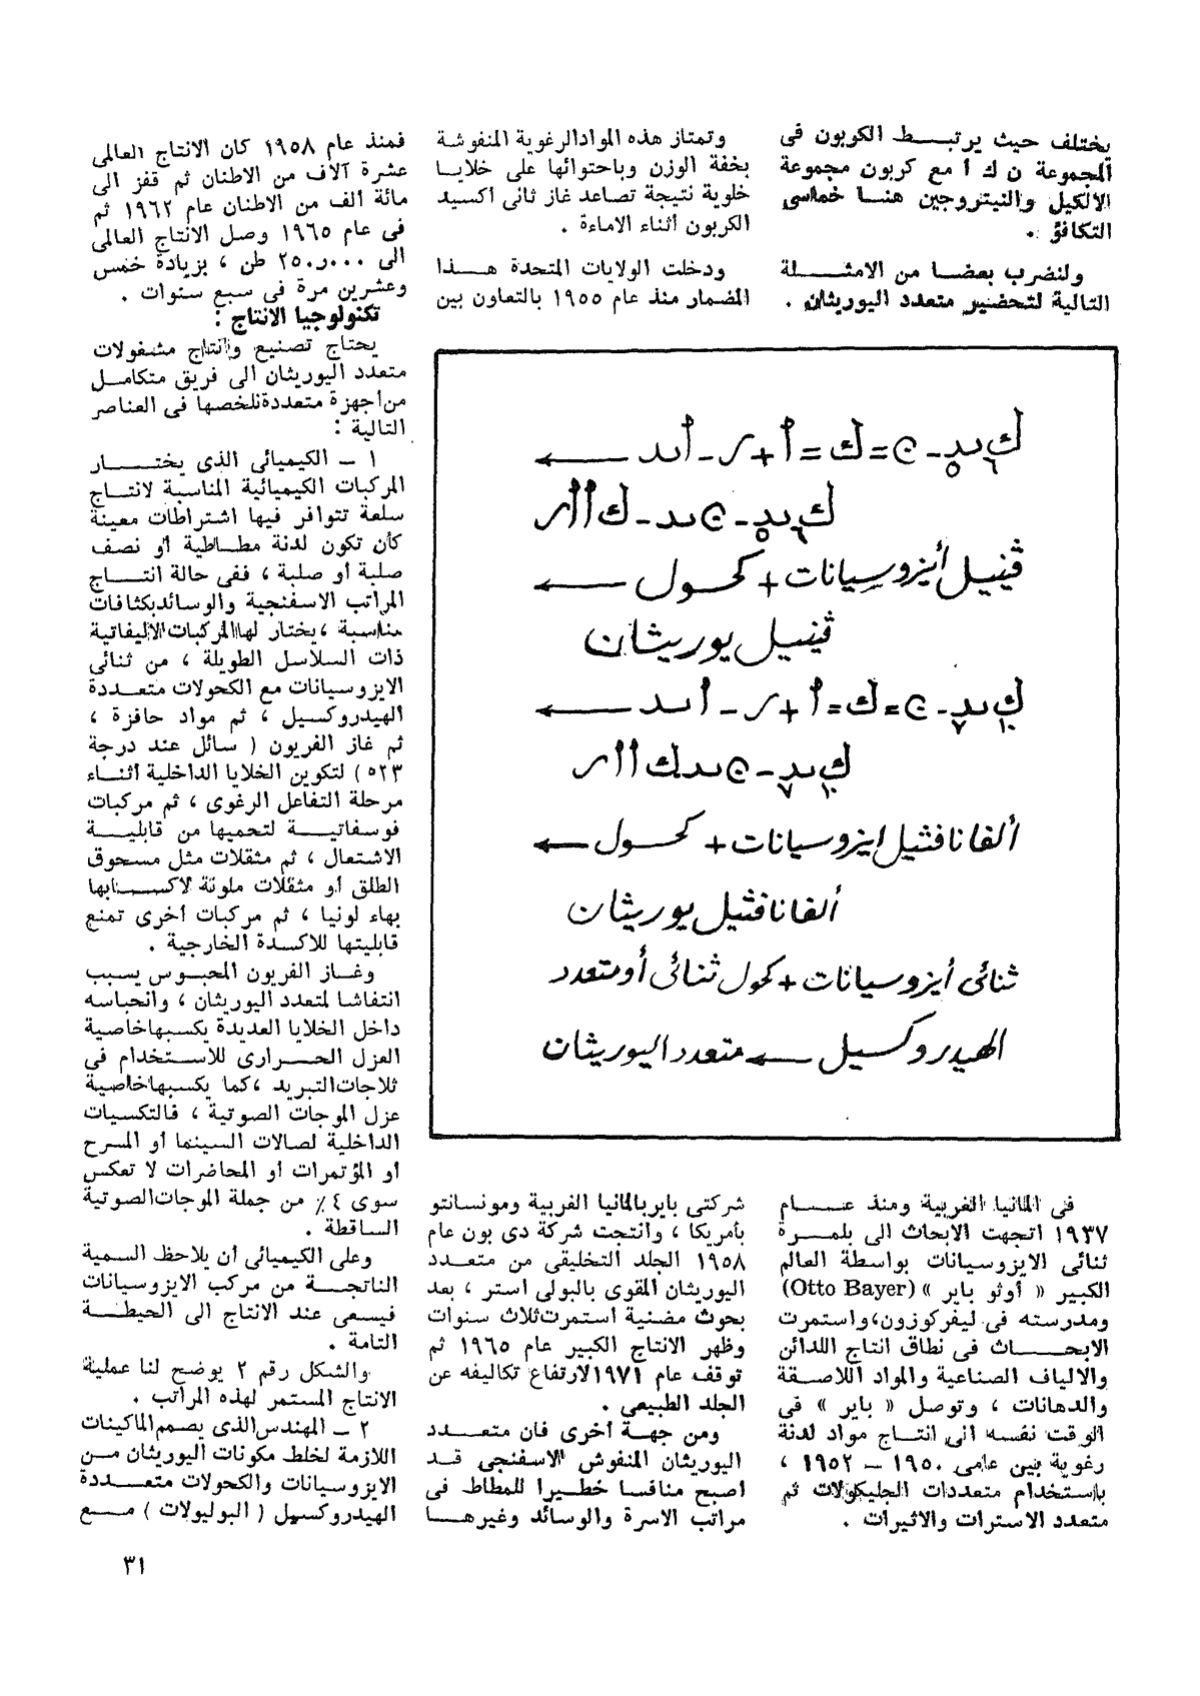 يختلف حيث يرتبـــط الكربون فى
المجموعة ن ك أ مع كربون مجموعة
الالكيل والنيتروجين هنـا خماسى
التكافؤ .
ولنضرب بعضـا من الامثــــلة
التالية لتحضير متعدد اليوريثان .
ك٦ يد٥ - ن = ك = أ + ر - أ يد ←
ك٦ يد٥ - ن يد - ك أ أ ر
ڤنيل أيزوسيانات + كحول ←
ڤنيل يوريثان
ك١٠ يد٧ - ن = ك = أ + ر - أ يد ←
ك١٠ يد٧ - ن يد ك أ أ ر
ألفا نافثيل ايزوسيانات + كحول ←
ألفا نافثيل يوريثان
ثنائى أيزوسيانات + كحول ثنائى أو متعدد
الهيدروكسيل ← متعدد اليوريثان
فى المانيا الغربية ومنذ عــــام
١٩٣٧ اتجهت الابحاث الى بلمــرة
ثنائى الايزوسيانات بواسطة العالم
الكبير « أوثو باير » (Otto Bayer)
ومدرسته فى ليفركوزون،واستمرت
الابحــــاث فى نطاق انتاج اللدائن
والالياف الصناعية والمواد اللاصــقة
والدهانات ، وتوصل « باير » فى
الوقت نفسه الى انتــاج مواد لدنة
رغوية بين عامى ١٩٥٠ – ١٩٥٢ ،
باستخدام متعددات الجليكولات ثم
متعدد الاسترات والاثيرات .
وتمتاز هذه الموادالرغوية المنفوشة
بخفة الوزن وباحتوائها على خلايــا
خلوية نتيجة تصاعد غاز ثانى أكسيد
الكربون أثناء الاماءة .
ودخلت الولايات المتحدة هــــذا
المضمار منذ عام ١٩٥٥ بالتعاون بين
شركتى بايربالمانيا الغربية ومونسانتو
بأمريكا ، وانتجت شركة دى بون عام
١٩٥٨ الجلد التخليقى من متعــدد
اليوريثان المقوى بالبولى استر ، بعد
بحوث مضنية استمرت‌ثلاث سنوات
وظهر الانتاج الكبير عام ١٩٦٥ ثم
توقف عام ١٩٧١لارتفاع تكاليفه عن
الجلد الطبيعى .
ومن جهــة أخرى فان متعــــدد
اليوريثان المنفوش الاسفنجى قــد
أصبح منافسا خطــيرا للمطاط فى
مراتب الاسرة والوسائد وغيرهــا
فمنذ عام ١٩٥٨ كان الانتاج العالمى
عشرة آلاف من الاطنان ثم قفز الى
مائة الف من الاطنان عام ١٩٦٢ ثم
فى عام ١٩٦٥ وصل الانتاج العالمى
الى ٢٥٠ر٠٠٠ طن ، بزيادة خمس
وعشرين مرة فى سبع سنوات .
تكنولوجيا الانتاج :
يحتاج تصنيع وانتاج مشغولات
متعدد اليوريثان الى فريق متكامـل
من‌أجهزة متعددةنلخصها فى العناصر
التالية :
١ – الكيميائى الذى يختــــار
المركبات الكيميائية المناسبة لانتــاج
سلعة تتوافر فيها اشتراطات معينة
كأن تكون لدنة مطــاطية أو نصف
صلبة أو صلبة ، ففى حالة انتـــاج
المراتب الاسفنجية والوسائدبكثافات
مناسبة ،يختار لهاالمركبات‌الاليفاتية
ذات السلاسل الطويلة ، من ثنائى
الايزوسيانات مع الكحولات متعــددة
الهيدروكسيل ، ثم مواد حافزة ،
ثم غاز الفريون ( سائل عند درجة
٢٣°م ) لتكوين الخلايا الداخلية أثنــاء
مرحلة التفاعل الرغوى ، ثم مركبات
فوسفاتيـــة لتحميها من قابليـــة
الاشتعال ، ثم مثقلات مثل مسحوق
الطلق أو مثقلات ملونة لاكســـابها
بهاء لونيا ، ثم مركبات أخرى تمنع
قابليتها للاكسدة الخارجية .
وغــاز الفريون المحبــوس يسبب
انتفاشا لمتعدد اليوريثان ، وانحباسه
داخل الخلايا العديدة يكسبهاخاصية
العزل الحــرارى للاستخدام فى
ثلاجات‌التبريد ،كما يكسبهاخاصية
عزل الموجات الصوتية ، فالتكسيات
الداخلية لصالات السينما أو المسرح
أو المؤتمرات أو المحاضرات لا تعكس
سوى ٤٪ من جملة الموجات‌الصوتية
الساقطة .
وعلى الكيميائى أن يلاحظ السمية
الناتجــة من مركب الايزوسيانات
فيسعى عند الانتاج الى الحيطــة
التامة .
والشكل رقم ٢ يوضح لنا عملية
الانتاج المستمر لهذه المراتب .
٢ – المهندس‌الذى يصمم‌الماكينات
اللازمة لخلط مكونات اليوريثان مــن
الايزوسيانات والكحولات متعــددة
الهيدروكسيل ( البوليولات ) مــع
٣١